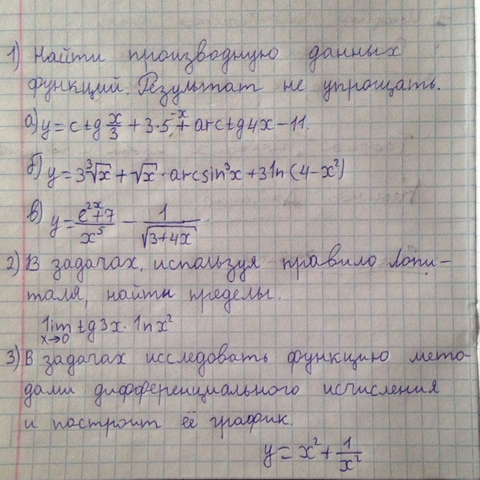 1) Найти производную данных
функций. Результат не упрощать.
а) y = ctg x/3 + 3·5^-x + arctg 4x - 11.
б) y = 3∛x + √x · arcsin³x + 3 ln (4 - x²)
в) y = (e^2x + 7)/x⁵ - 1/√(3+4x)
2) В задачах, используя правило Лопи-
таля, найти пределы.
lim x→0 tg 3x · ln x²
3) В задачах исследовать функцию мето-
дами дифференциального исчисления
и построит её график.
y = x² + 1/x²